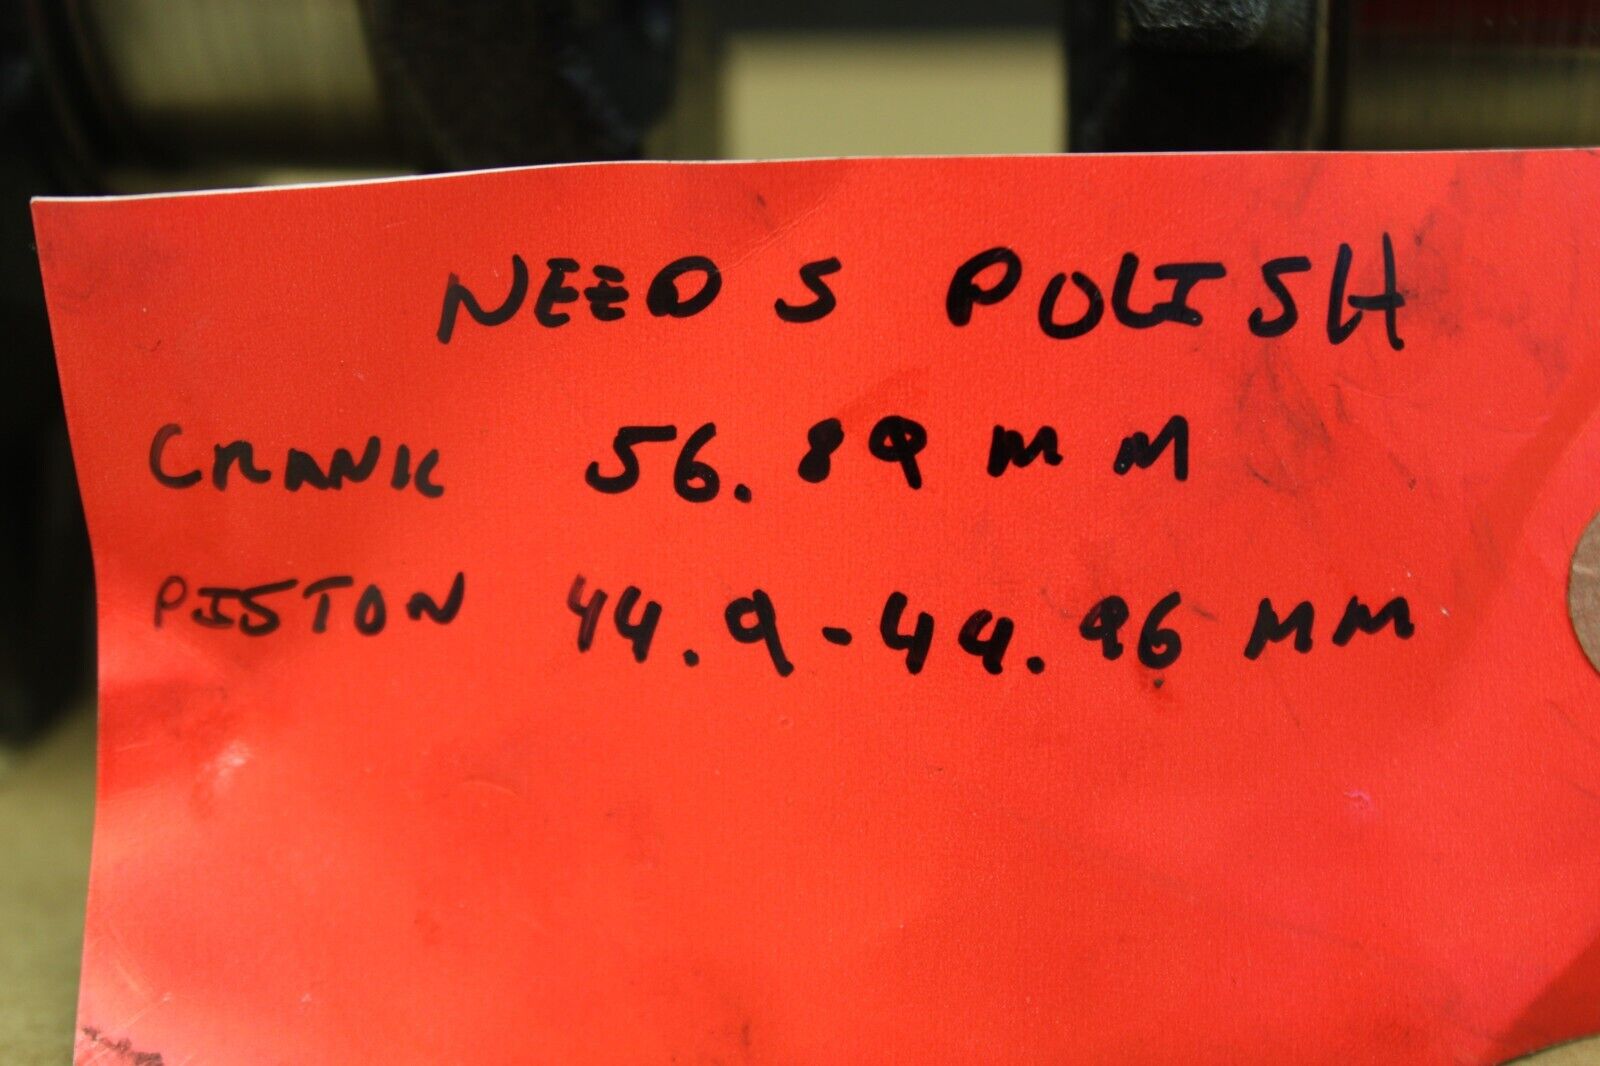 NEEDS POLISH
CRANK 56.89 MM
PISTON 44.9-44.96 MM